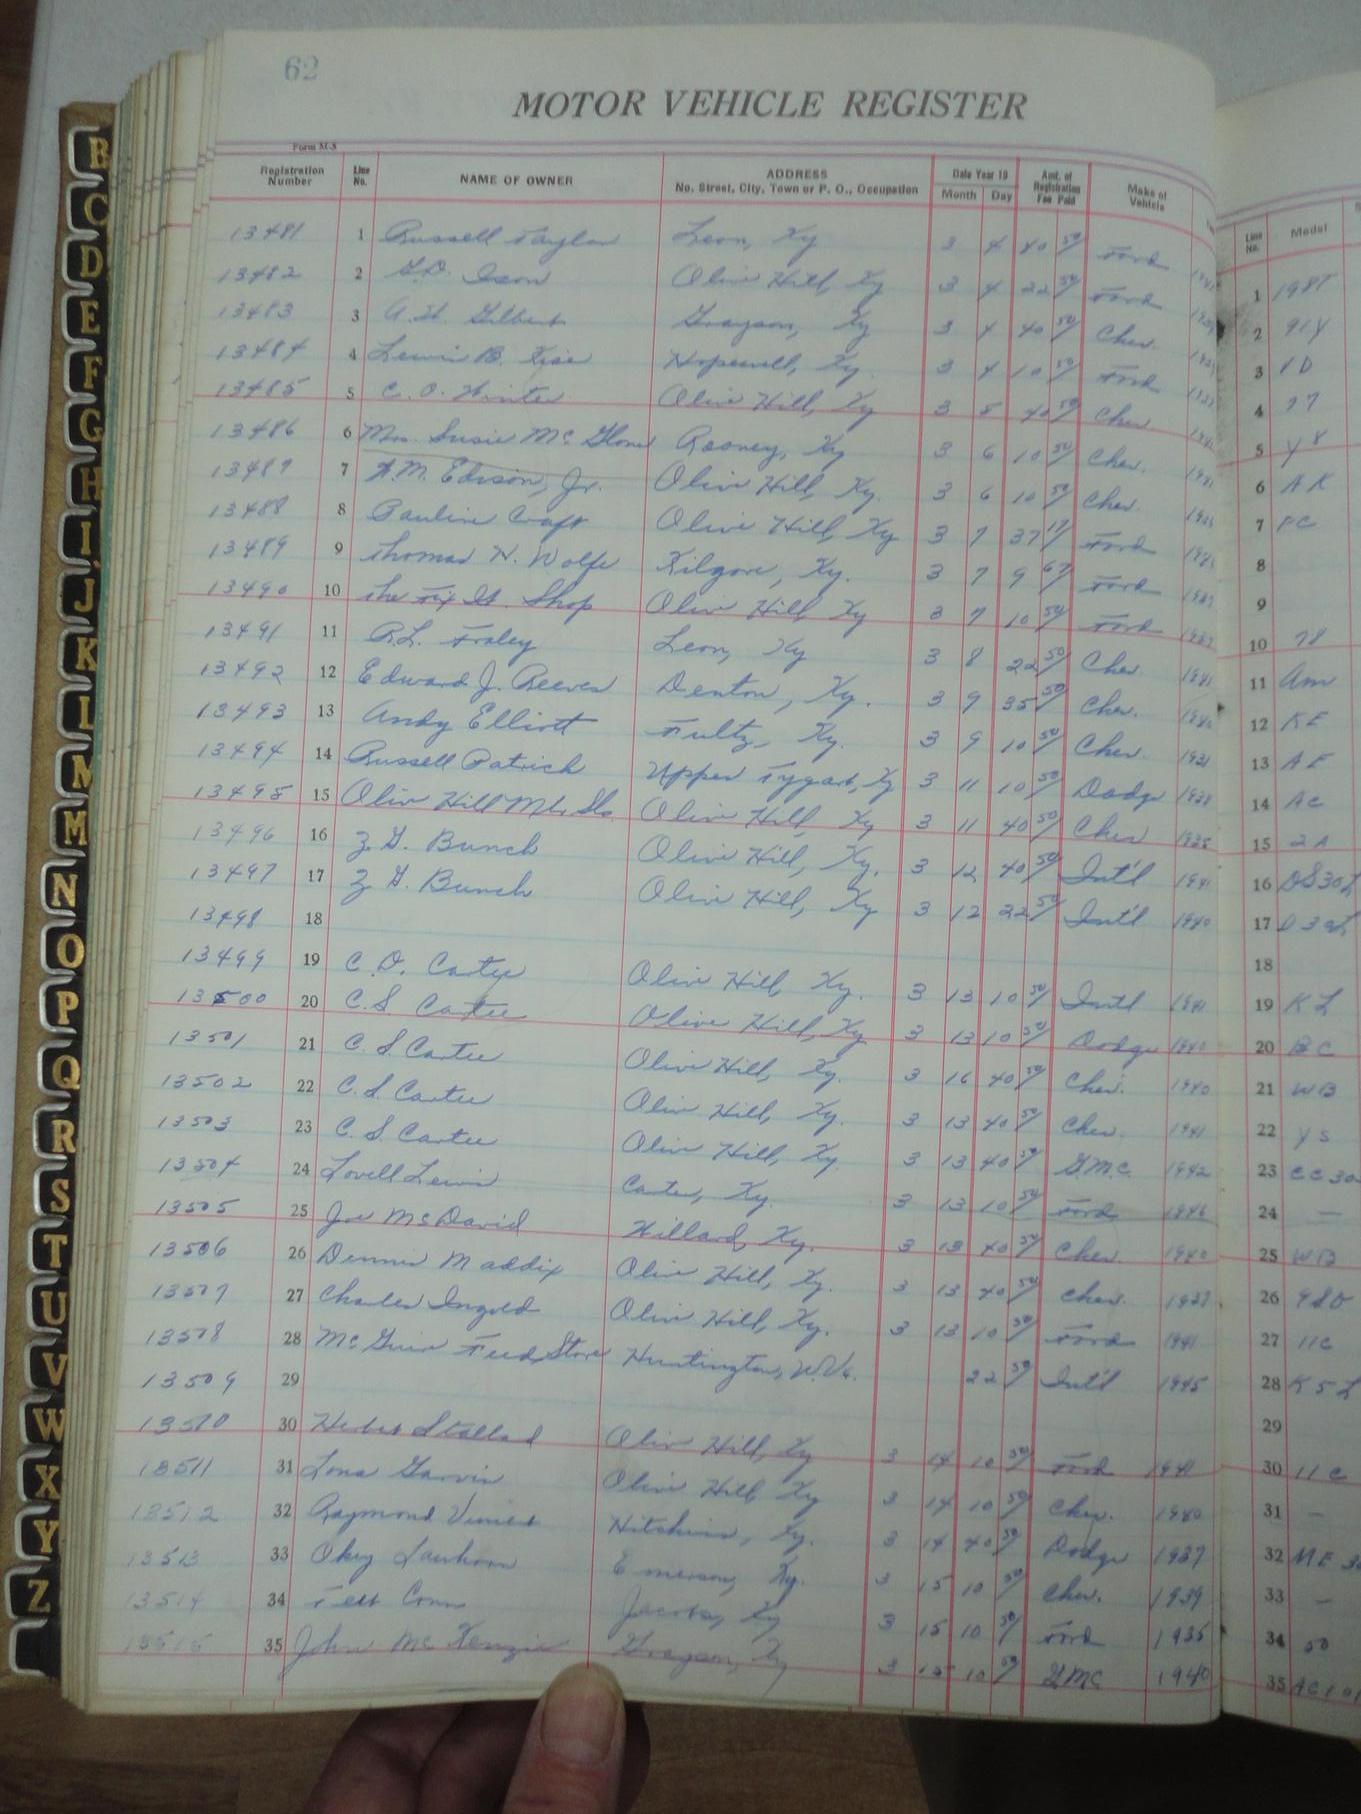 62
MOTOR VEHICLE REGISTER
Form M-S
Registration Number Line No. NAME OF OWNER ADDRESS No. Street, City, Town or P. O., Occupation Date Year 19 Month Day Amt. of Registration Fee Paid Make of Vehicle Line No. Model
13481 1 Russell Taylor Leon, Ky 3 4 40 50 Ford 1 198T
13482 2 G.D. Ison Olive Hill, Ky 3 4 22 50 Ford 2 91Y
13483 3 Gilbert Grayson, Ky 3 4 40 50 Chev. 3 1D
13484 4 Lewis B. Kise Hopewell, Ky. 3 4 10 50 Ford 4 77
13485 5 C. O. Winter Olive Hill, Ky 3 5 40 50 Chev 5 Y8
13486 6 Mrs. Susie McGlone Rooney, Ky 3 6 10 50 Chev. 6 AK
13487 7 Edison, Jr. Olive Hill, Ky. 3 6 10 50 Chev. 7 FC
13488 8 Pauline Craft Olive Hill, Ky 3 7 37 17 Ford 8
13489 9 Thomas H. Wolfe Kilgore, Ky. 3 7 9 67 Ford 1937 9
13490 10 The Fix It Shop Olive Hill Ky 3 7 10 50 Ford 1937 10 78
13491 11 R.L. Fraley Leon, Ky 3 8 22 50 Chev. 1941 11 AM
13492 12 Edward J. Reeves Denton, Ky. 3 9 35 50 Chev. 1940 12 KE
13493 13 Andy Elliott Fultz, Ky. 3 9 10 50 Chev. 1931 13 AE
13494 14 Russell Patrick Upper Tygart, Ky 3 11 10 50 Dodge 14 AC
13495 15 Olive Hill Olive Hill, Ky 3 11 40 50 Chev 15 2A
13496 16 Z G. Bunch Olive Hill, Ky. 3 12 40 50 Int'l 1941 16
13497 17 Z G. Bunch Olive Hill, Ky 3 12 22 50 Int'l 1940 17
13498 18 18
13499 19 C. O. Carter Olive Hill Ky. 3 13 10 50 Intl 1941 19 KL
13500 20 C.S Carter Olive Hill, Ky 3 13 10 50 Dodge 1940 20 BC
13501 21 C. S Carter Olive Hill, Ky. 3 16 40 50 Chev. 1940 21 WB
13502 22 C. S. Carter Olive Hill, Ky. 3 13 40 50 Chev. 1941 22 YS
13503 23 C. S. Carter Olive Hill, Ky 3 13 40 50 G.M.C. 1942 23 CC 30
13504 24 Lovell Lewis Carter, Ky. 3 13 10 50 Ford 1946 24 —
13505 25 Joe McDavid Willard, Ky. 3 13 40 50 Chev. 1940 25 WB
13506 26 Dennis Maddix Olive Hill, Ky. 3 13 40 50 Chev. 1937 26
13507 27 Charles Olive Hill, Ky. 3 13 10 50 Ford 1941 27 11C
13508 28 McGuire Feed Store Huntington, W.Va. 22 50 Int'l 1945 28 K5L
13509 29 29
13510 30 Heber Stallard Olive Hill, Ky 3 14 10 50 Ford 1941 30 11C
13511 31 Lona Garvin Olive Hill, Ky 3 14 10 50 Chev. 1940 31 —
13512 32 Raymond Hitchins, Ky. 3 14 40 50 Dodge 1937 32
13513 33 Okey Lawhorn Emerson, Ky. 3 15 10 50 Chev. 1939 33 —
13514 34 Conn Jacobs, Ky 3 15 10 50 Ford 1935 34 50
13515 35 John McKenzie Grayson, Ky 3 15 10 50 GMC 1940 35 AC101
B
C
D
E
F
G
H
I
J
K
L
M
M
N
O
P
Q
R
S
T
U
V
W
X
Y
Z